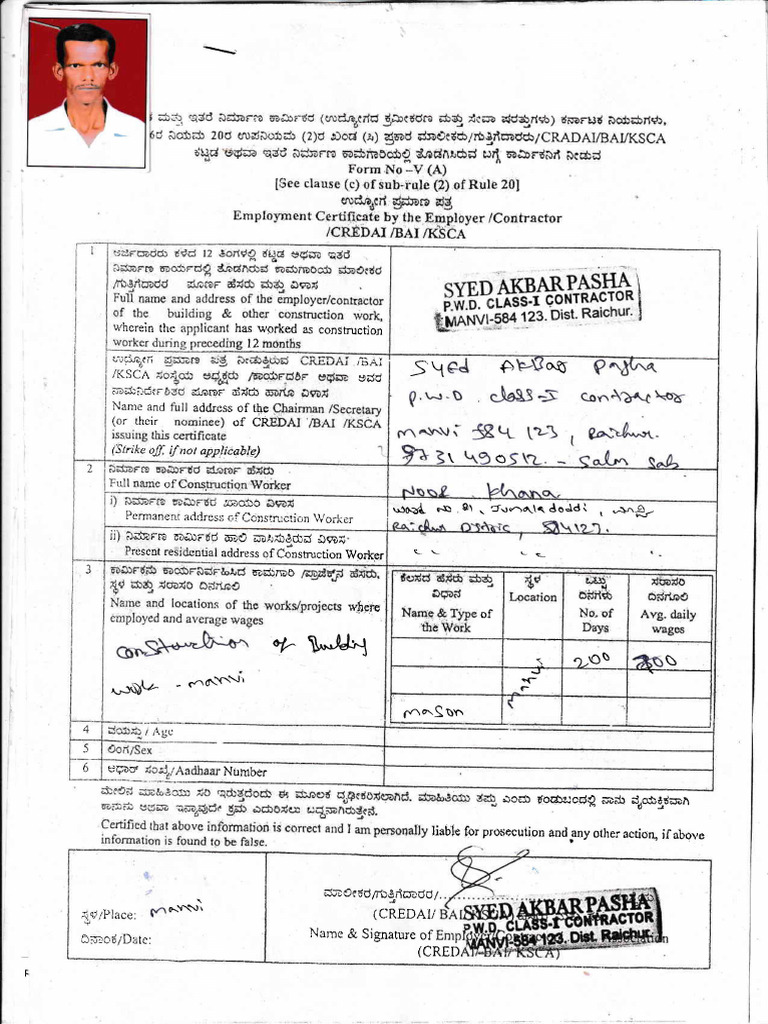 ಮತ್ತು ಇತರೆ ನಿರ್ಮಾಣ ಕಾರ್ಮಿಕರ (ಉದ್ಯೋಗದ ಕ್ರಮೀಕರಣ ಮತ್ತು ಸೇವಾ ಷರತ್ತುಗಳು) ಕರ್ನಾಟಕ ನಿಯಮಗಳು,
6ರ ನಿಯಮ 20ರ ಉಪನಿಯಮ (2)ರ ಖಂಡ (ಸಿ) ಪ್ರಕಾರ ಮಾಲೀಕರು/ಗುತ್ತಿಗೆದಾರರು/CRADAI/BAI/KSCA
ಕಟ್ಟಡ ಅಥವಾ ಇತರೆ ನಿರ್ಮಾಣ ಕಾಮಗಾರಿಯಲ್ಲಿ ತೊಡಗಿಸಿರುವ ಬಗ್ಗೆ ಕಾರ್ಮಿಕನಿಗೆ ನೀಡುವ
Form No –V (A)
[See clause (c) of sub-rule (2) of Rule 20]
ಉದ್ಯೋಗ ಪ್ರಮಾಣ ಪತ್ರ
Employment Certificate by the Employer /Contractor
/CREDAI /BAI /KSCA
1 ಅರ್ಜಿದಾರರು ಕಳೆದ 12 ತಿಂಗಳಲ್ಲಿ ಕಟ್ಟಡ ಅಥವಾ ಇತರೆ
ನಿರ್ಮಾಣ ಕಾರ್ಯದಲ್ಲಿ ತೊಡಗಿರುವ ಕಾಮಗಾರಿಯ ಮಾಲೀಕರ
/ಗುತ್ತಿಗೆದಾರರ ಪೂರ್ಣ ಹೆಸರು ಮತ್ತು ವಿಳಾಸ
Full name and address of the employer/contractor
of the building & other construction work,
wherein the applicant has worked as construction
worker during preceding 12 months
SYED AKBAR PASHA
P.W.D. CLASS-I CONTRACTOR
MANVI-584 123. Dist. Raichur.
ಉದ್ಯೋಗ ಪ್ರಮಾಣ ಪತ್ರ ನೀಡುತ್ತಿರುವ CREDAI /BAI
/KSCA ಸಂಸ್ಥೆಯ ಅಧ್ಯಕ್ಷರು /ಕಾರ್ಯದರ್ಶಿ ಅಥವಾ ಅವರ
ನಾಮನಿರ್ದೇಶಿತರ ಪೂರ್ಣ ಹೆಸರು ಹಾಗೂ ವಿಳಾಸ
Name and full address of the Chairman /Secretary
(or their nominee) of CREDAI /BAI /KSCA
issuing this certificate
(Strike off, if not applicable)
Syed Akbar Pasha
P.W.D. class-I contractor
manvi 584 123, Raichur.
9731490512. - Salm Sab
2 ನಿರ್ಮಾಣ ಕಾರ್ಮಿಕರ ಪೂರ್ಣ ಹೆಸರು
Full name of Construction Worker
Noor Khana
i) ನಿರ್ಮಾಣ ಕಾರ್ಮಿಕರ ಖಾಯಂ ವಿಳಾಸ
Permanent address of Construction Worker
word no. 21, Jumaladoddi, ಮಾನ್ವಿ
Raichur District, 584123.
ii) ನಿರ್ಮಾಣ ಕಾರ್ಮಿಕರ ಹಾಲಿ ವಾಸಿಸುತ್ತಿರುವ ವಿಳಾಸ
Present residential address of Construction Worker
" " "
3 ಕಾರ್ಮಿಕನು ಕಾರ್ಯನಿರ್ವಹಿಸಿದ ಕಾಮಗಾರಿ /ಪ್ರಾಜೆಕ್ಟ್‌ನ ಹೆಸರು,
ಸ್ಥಳ ಮತ್ತು ಸರಾಸರಿ ದಿನಗೂಲಿ
Name and locations of the works/projects where
employed and average wages
construction of Building
work - manvi
ಕೆಲಸದ ಹೆಸರು ಮತ್ತು ವಿಧಾನ
Name & Type of the Work
ಸ್ಥಳ
Location
ಒಟ್ಟು ದಿನಗಳು
No. of Days
ಸರಾಸರಿ ದಿನಗೂಲಿ
Avg. daily wages
mason manvi 200
4 ವಯಸ್ಸು / Age
5 ಲಿಂಗ/Sex
6 ಆಧಾರ್ ಸಂಖ್ಯೆ/Aadhaar Number
ಮೇಲಿನ ಮಾಹಿತಿಯು ಸರಿ ಇರುತ್ತದೆಂದು ಈ ಮೂಲಕ ದೃಢೀಕರಿಸಲಾಗಿದೆ. ಮಾಹಿತಿಯು ತಪ್ಪು ಎಂದು ಕಂಡುಬಂದಲ್ಲಿ ನಾನು ವೈಯಕ್ತಿಕವಾಗಿ
ಕಾನೂನು ಅಥವಾ ಇನ್ಯಾವುದೇ ಕ್ರಮ ಎದುರಿಸಲು ಬದ್ಧನಾಗಿರುತ್ತೇನೆ.
Certified that above information is correct and I am personally liable for prosecution and any other action, if above
information is found to be false.
ಸ್ಥಳ/Place: manvi
ದಿನಾಂಕ/Date:
ಮಾಲೀಕರ/ಗುತ್ತಿಗೆದಾರರ/
(CREDAI/ BAI/
Name & Signature of Employer/
(CREDAI/ BAI/ KSCA)
SYED AKBAR PASHA
P.W.D. CLASS-I CONTRACTOR
MANVI-584 123. Dist. Raichur.